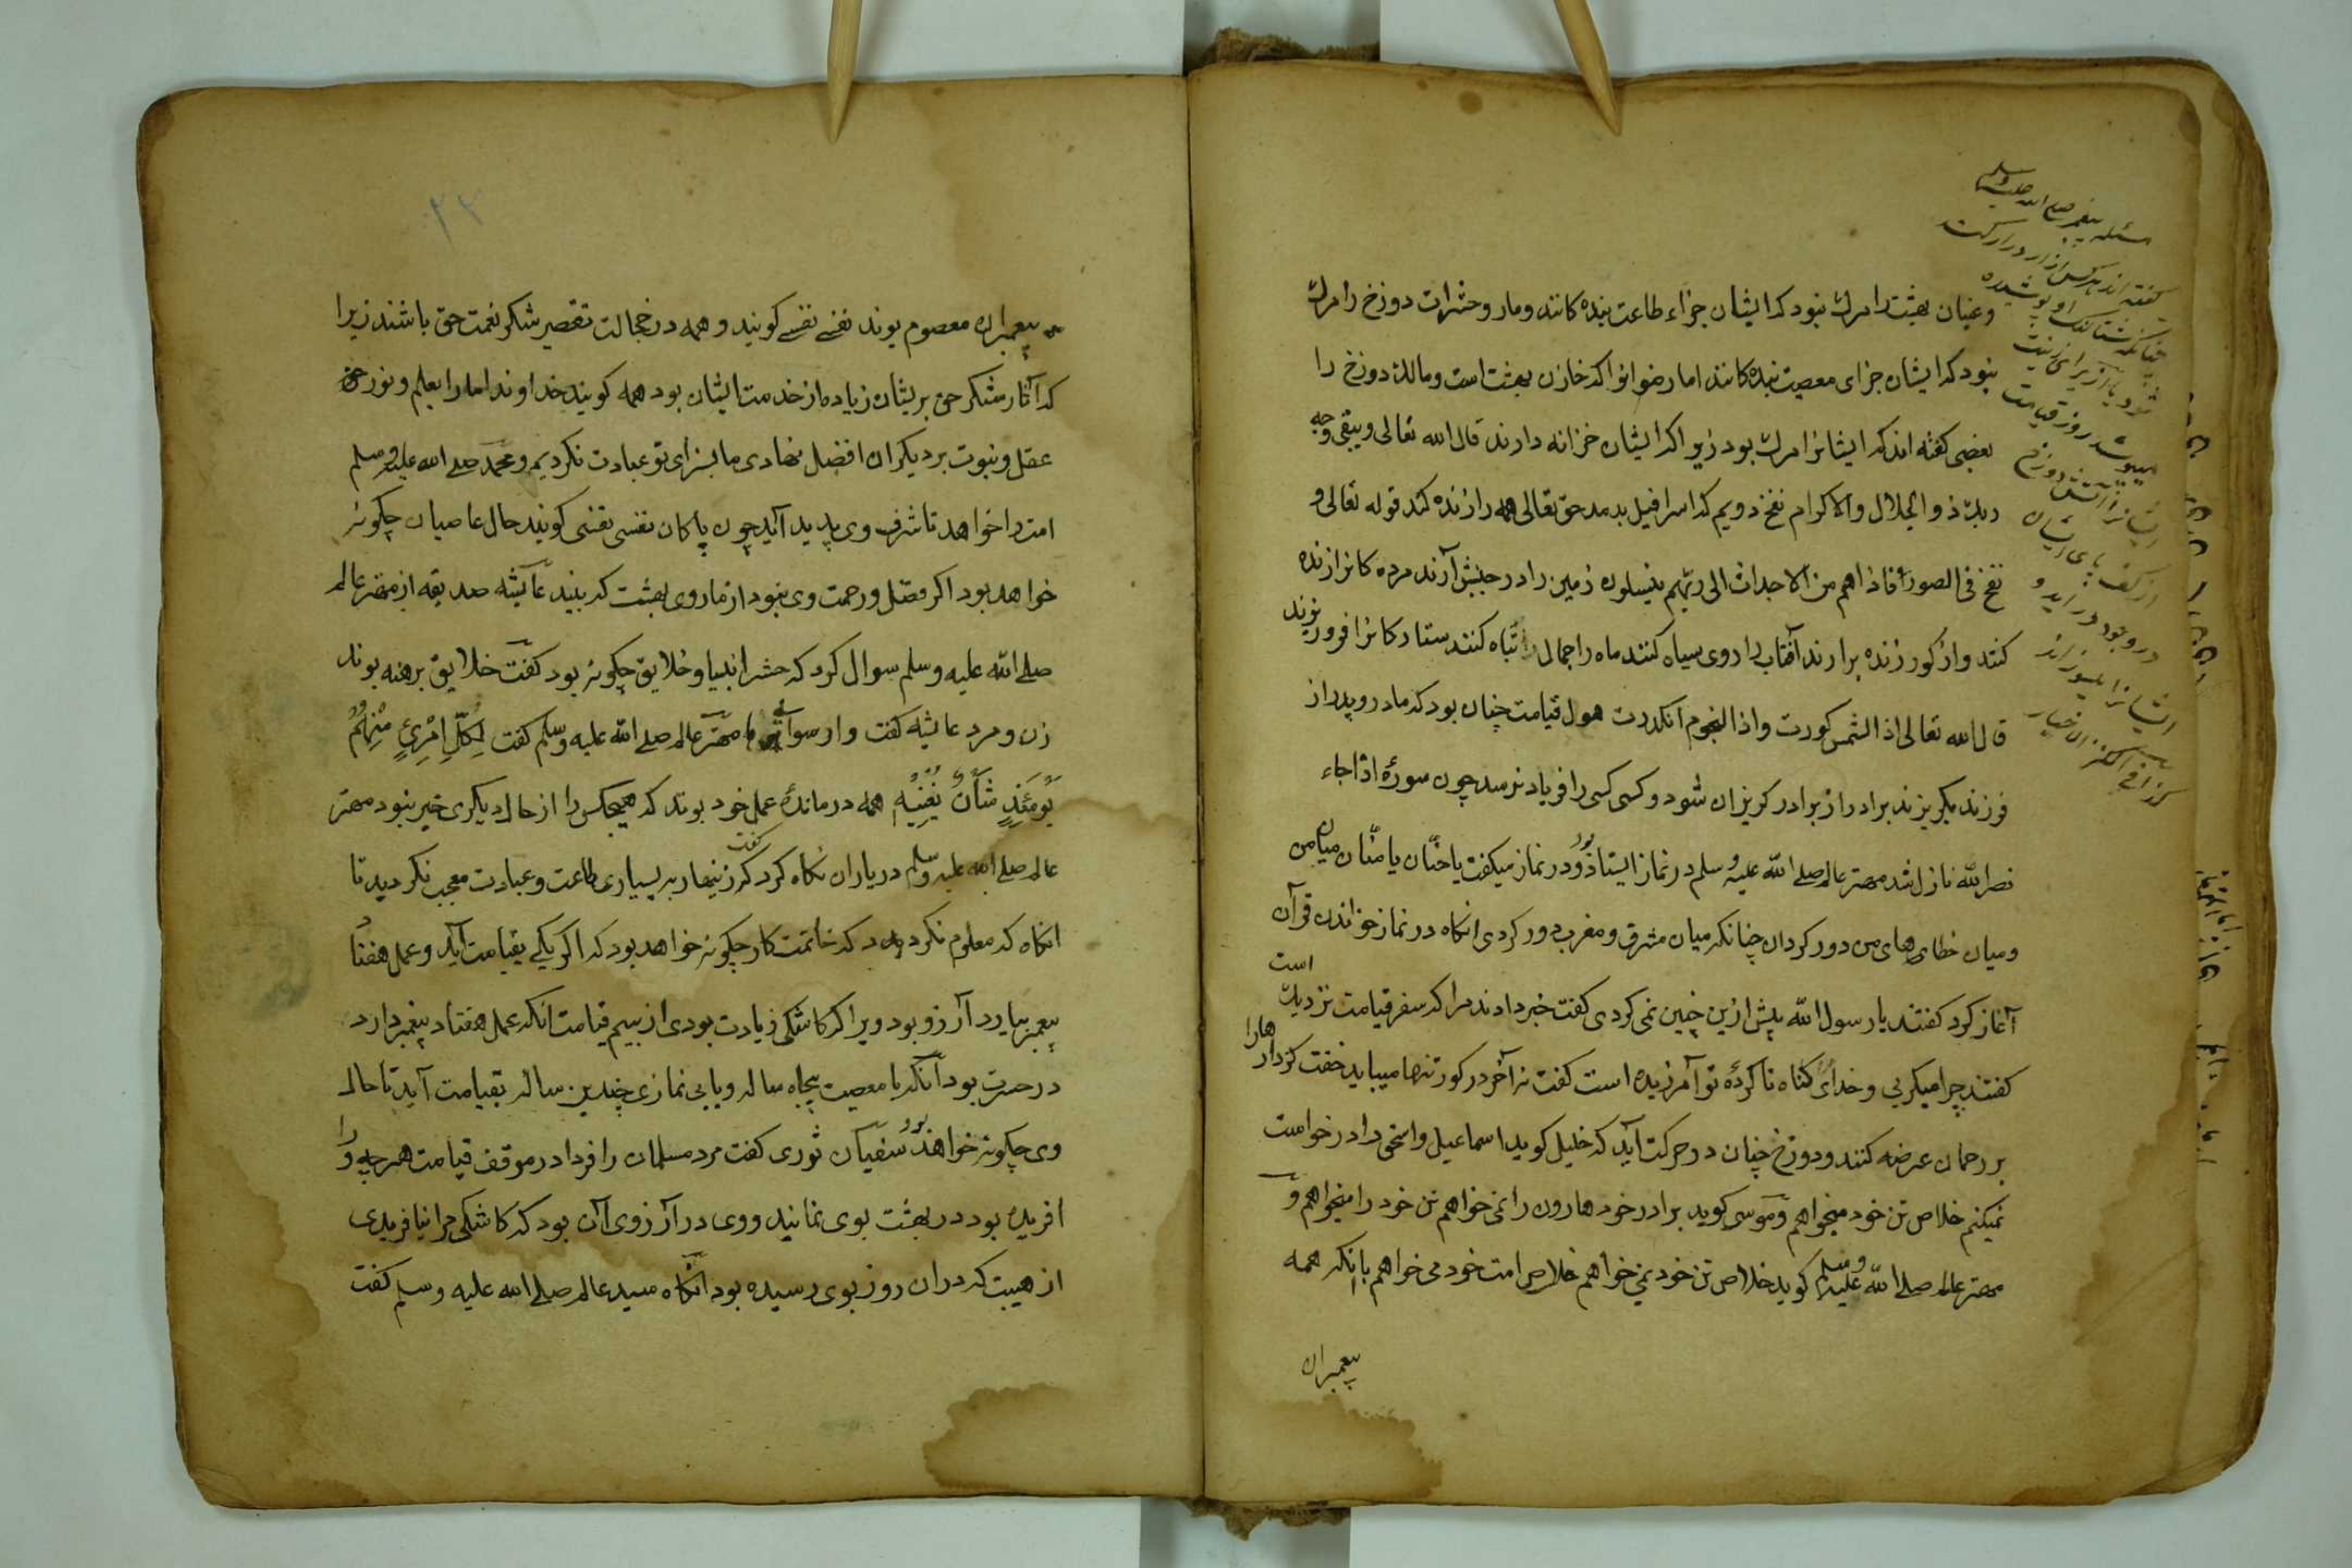 وغبان بهشت را مرك نبود كه ایشان جزاء طاعت بنده كانند ومار وحشرات دوزخ را مرك
نبود كه ایشان جزای معصیت بنده كانند اما رضوانرا كه خازن بهشت است ومالك دوزخ را
بعضی كفته اند كه ایشانرا مرك بود زیرا كه ایشان خزانه دارند قال الله تعالی ویبقی وجه
ربك ذو الجلال والاكرام نفخ دویم كه اسرافیل بدمد حق تعالی همه را زنده كند قوله تعالی و
نفخ فی الصور فاذا هم من الاجداث الی ربهم ینسلون زمین را در جنبش آرند مرده كانرا زنده
كنند واز كور زنده برارند آفتاب را روی سیاه كنند ماه را جمال تباه كنند ستاركانرا فرو ریزند
قال الله تعالی اذ الشمس كورت واذا النجوم انكدرت هول قیامت چنان بود كه مادر وپدر از
فرزند بكریزند برادر از برادر كریزان شود وكسی كسی را فریاد نرسد چون سورهٔ اذا جاء
نصر الله نازل شد مهتر عالم صلی الله علیه وسلم در نماز ایستاد ودر نماز میكفت یا حنان یا منان میان من
ومیان خطای های من دور كردان چنانكه میان مشرق ومغرب دور كردی انكاه در نماز خواندن قرآن
آغاز كرد كفتند یا رسول الله پیش ازین چنین نمی كردی كفت خبر دادند مرا كه سفر قیامت نزدیك است
كفتند چرا میكریی وخدای كناه ناكردهٔ تو آمرزیده است كفت نه آخر در كور تنها میباید خفت كردارها را
بر رحمان عرضه كنند ودوزخ چنان در حركت آید كه خلیل كوید اسماعیل واسحق را درخواست
نمیكنم خلاص تن خود میخواهم وموسی كوید برادر خود هارون را نمی خواهم تن خود را میخواهم و
مهتر عالم صلی الله علیه وسلم كوید خلاص تن خود نمی خواهم خلاص امت خود می خواهم بانكه همه
پیغمبران
مسئله پیغمبر صلی الله علیه وسلم
كفته اند هر كس ازار دراز كند
چنانكه شتالنك او پوشیده
شود یا از برای زینت
بپوشد روز قیامت
ایشانرا آتش دوزخ
از كف پای ایشان
در وجود در آید و
ایشانرا بسوزاند
۲۳
پیغمبران معصوم بوند نفسی نفسی كویند وهمه در خجالت تقصیر شكر نعمت حق باشند زیرا
كه آثار شكر حق بریشان زیاده از خدمت ایشان بود همه كویند خداوندا ما را بعلم ونور حق
عقل ونبوت بر دیكران افضل نهادی ما بسزای تو عبادت نكردیم ومحمد صلی الله علیه وسلم
امت را خواهد تا شرف وی پدید آید چون پاكان نفسی نفسی كویند حال عاصیان چكونه
خواهد بود اكر فضل ورحمت وی نبود از ما روی بهشت كه بیند عایشه صدیقه از مهتر عالم
صلی الله علیه وسلم سوال كرد كه حشر انبیا وخلایق چكونه بود كفت خلایق برهنه بوند
زن ومرد عایشه كفت وا رسوائی ما مهتر عالم صلی الله علیه وسلم كفت لِكُلِّ امْرِئٍ مِنْهُمْ
يَوْمَئِذٍ شَأْنٌ يُغْنِيهِ همه در ماندهٔ عمل خود بوند كه هیچكس را از حال دیكری خبر نبود مهتر
عالم صلی الله علیه وسلم در یاران نكاه كرد كفت كه زینهار به بسیاری طاعت وعبادت معجب نكردید تا
انكاه كه معلوم نكردد كه خاتمت كار چكونه خواهد بود كه اكر یكی بقیامت آید وعمل هفتاد
پیغمبر بیارد آرزو بود ویرا كه كاشكی زیادت بودی از بیم قیامت انكه عمل هفتاد پیغمبر دارد
در حسرت بود آنكه با معصیت پنجاه ساله وبا بی نمازی چندین ساله بقیامت آید تا حال
وی چكونه خواهد بود سفیان ثوری كفت مرد مسلمان را فردا در موقف قیامت هر چه او را
افریده بود در بهشت بوی نمایند ووی در آرزوی آن بود كه كاشكی مرا نیافریدی
از هیبت كه دران روز بوی رسیده بود انكاه سید عالم صلی الله علیه وسلم كفت